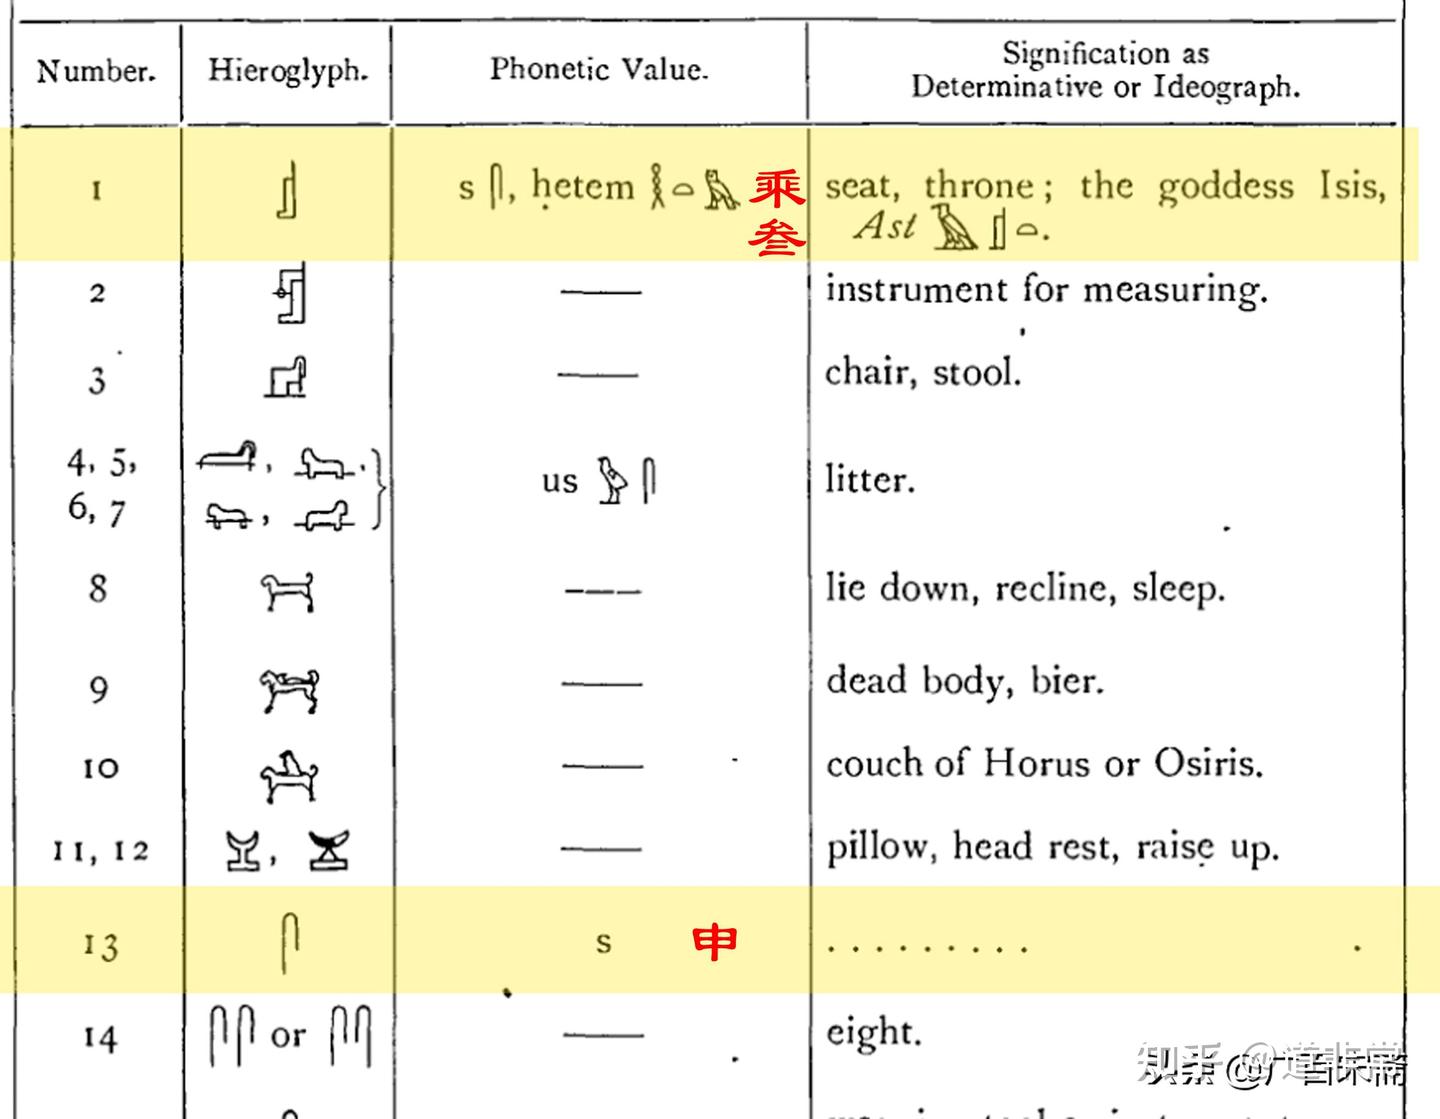 Number. Hieroglyph. Phonetic Value. Signification as
Determinative or Ideograph.
1 s , ḥetem 乘 seat, throne; the goddess Isis,
叁 Ast .
2 — instrument for measuring.
3 — chair, stool.
4, 5, , ,
us litter.
6, 7 ,
8 — lie down, recline, sleep.
9 — dead body, bier.
10 — couch of Horus or Osiris.
11, 12 , — pillow, head rest, raise up.
13 s 申 . . . . . . . . . .
14 or — eight.
知乎 @道非常